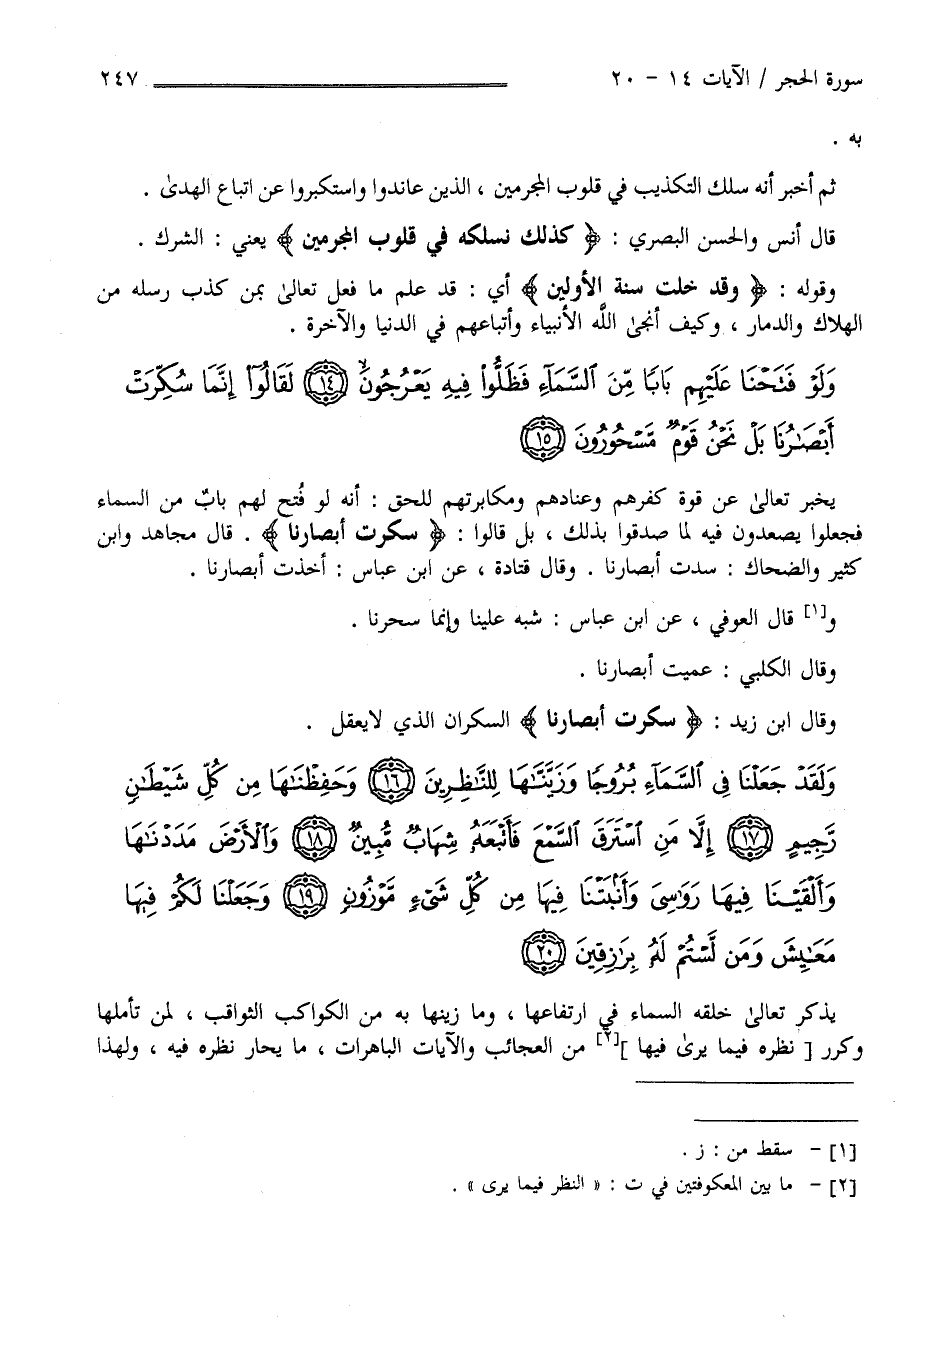 سورة الحجر / الآيات ١٤ - ٢٠ ٢٤٧
به .
ثم أخبر أنه سلك التكذيب في قلوب المجرمين ، الذين عاندوا واستكبروا عن اتباع الهدىٰ .
قال أنس والحسن البصري : ﴿ كذلك نسلكه في قلوب المجرمين ﴾ يعني : الشرك .
وقوله : ﴿ وقد خلت سنة الأولين ﴾ أي : قد علم ما فعل تعالىٰ بمن كذب رسله من
الهلاك والدمار ، وكيف أنجىٰ اللَّه الأنبياء وأتباعهم في الدنيا والآخرة .
وَلَوْ فَتَحْنَا عَلَيْهِم بَابًا مِّنَ ٱلسَّمَآءِ فَظَلُّوا۟ فِيهِ يَعْرُجُونَ ۙ ١٤ لَقَالُوٓا۟ إِنَّمَا سُكِّرَتْ
أَبْصَـٰرُنَا بَلْ نَحْنُ قَوْمٌ مَّسْحُورُونَ ١٥
يخبر تعالىٰ عن قوة كفرهم وعنادهم ومكابرتهم للحق : أنه لو فُتح لهم بابٌ من السماء
فجعلوا يصعدون فيه لما صدقوا بذلك ، بل قالوا : ﴿ سكرت أبصارنا ﴾ . قال مجاهد وابن
كثير والضحاك : سدت أبصارنا . وقال قتادة ، عن ابن عباس : أخذت أبصارنا .
و[١] قال العوفي ، عن ابن عباس : شبه علينا وإنما سحرنا .
وقال الكلبي : عميت أبصارنا .
وقال ابن زيد : ﴿ سكرت أبصارنا ﴾ السكران الذي لايعقل .
وَلَقَدْ جَعَلْنَا فِى ٱلسَّمَآءِ بُرُوجًا وَزَيَّنَّـٰهَا لِلنَّـٰظِرِينَ ١٦ وَحَفِظْنَـٰهَا مِن كُلِّ شَيْطَـٰنٍ
رَّجِيمٍ ١٧ إِلَّا مَنِ ٱسْتَرَقَ ٱلسَّمْعَ فَأَتْبَعَهُۥ شِهَابٌ مُّبِينٌ ١٨ وَٱلْأَرْضَ مَدَدْنَـٰهَا
وَأَلْقَيْنَا فِيهَا رَوَٰسِىَ وَأَنۢبَتْنَا فِيهَا مِن كُلِّ شَىْءٍ مَّوْزُونٍ ١٩ وَجَعَلْنَا لَكُمْ فِيهَا
مَعَـٰيِشَ وَمَن لَّسْتُمْ لَهُۥ بِرَٰزِقِينَ ٢٠
يذكر تعالىٰ خلقه السماء في ارتفاعها ، وما زينها به من الكواكب الثواقب ، لمن تأملها
وكرر [ نظره فيما يرىٰ فيها ][٢] من العجائب والآيات الباهرات ، ما يحار نظره فيه ، ولهذا
[١] - سقط من : ز .
[٢] - ما بين المعكوفتين في ت : « النظر فيما يرى » .